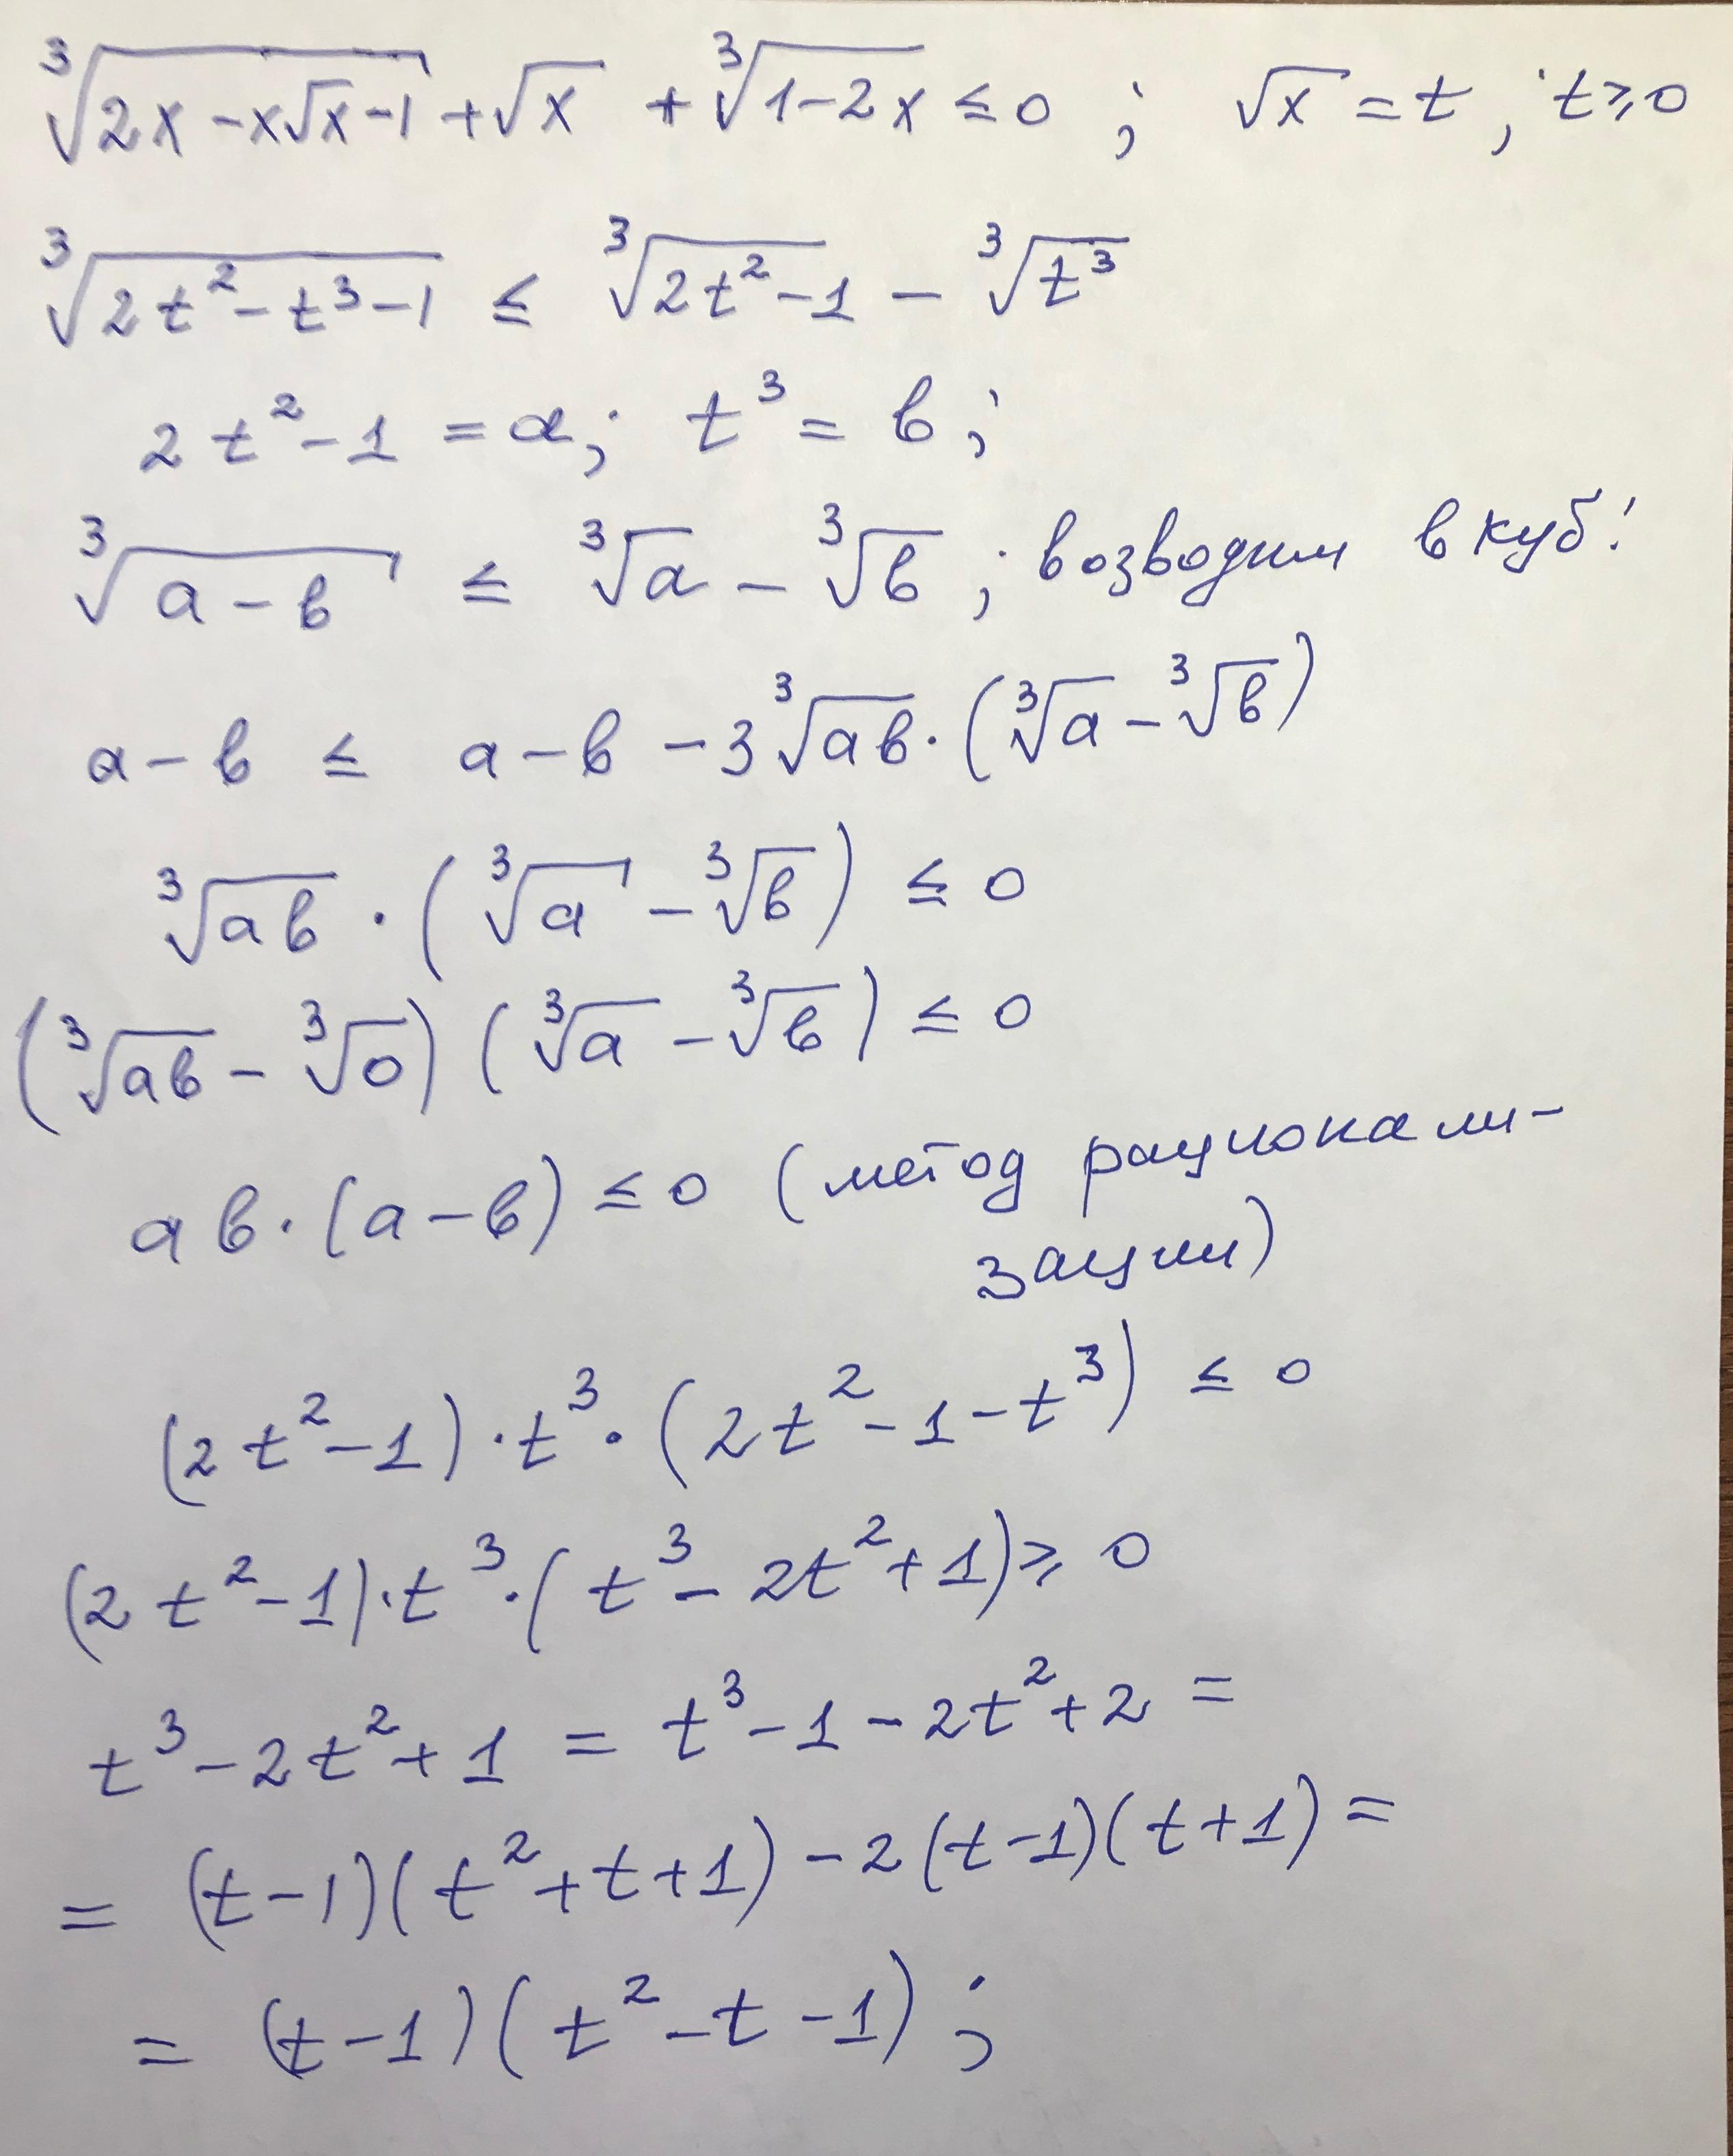 ∛(2x − x√x − 1) + √x + ∛(1 − 2x) ≤ 0 ; √x = t, t ≥ 0
∛(2t² − t³ − 1) ≤ ∛(2t² − 1) − ∛(t³)
2t² − 1 = a; t³ = в;
∛(a − в) ≤ ∛a − ∛в ; возводим в куб!
a − в ≤ a − в − 3∛(aв) · (∛a − ∛в)
∛(aв) · (∛a − ∛в) ≤ 0
(∛(aв) − ∛0)(∛a − ∛в) ≤ 0
aв · (a − в) ≤ 0 (метод рационали-
зации)
(2t² − 1) · t³ · (2t² − 1 − t³) ≤ 0
(2t² − 1) · t³ · (t³ − 2t² + 1) ≥ 0
t³ − 2t² + 1 = t³ − 1 − 2t² + 2 =
= (t − 1)(t² + t + 1) − 2(t − 1)(t + 1) =
= (t − 1)(t² − t − 1) ;